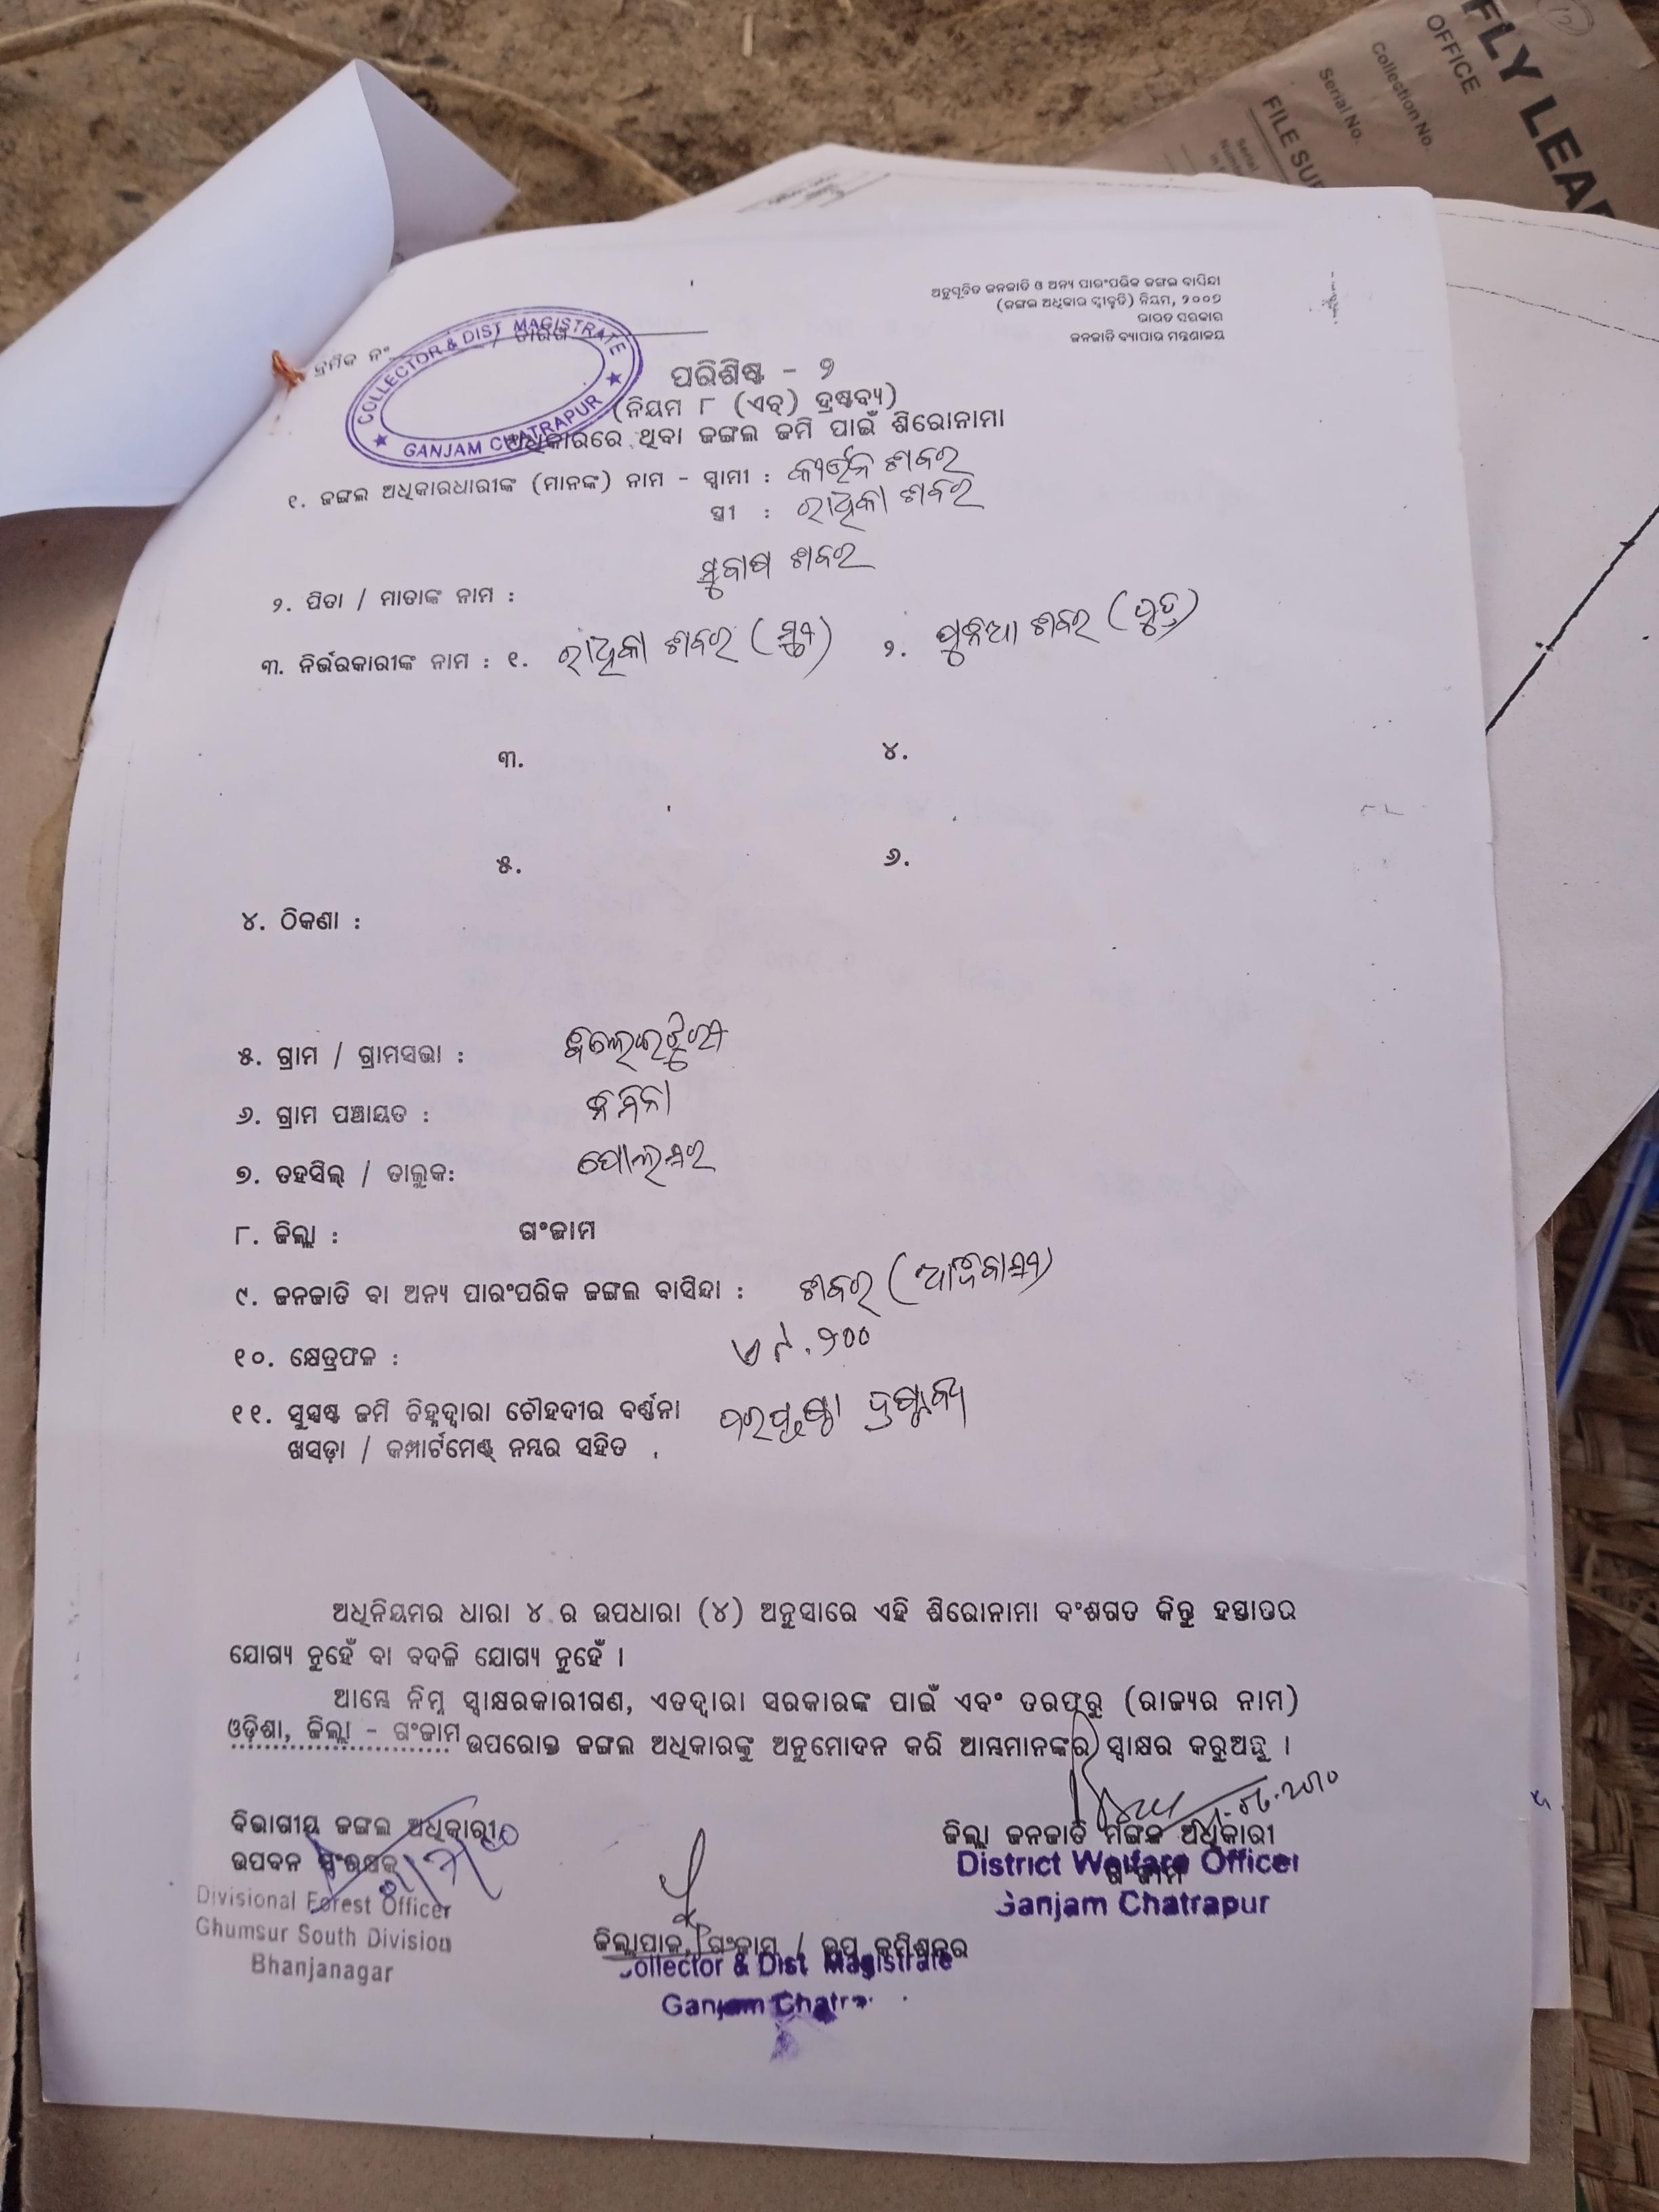 FLY LEAF
OFFICE
Collection No.
Serial No.
FILE SUB
Serial
ଅନୁସୂଚିତ ଜନଜାତି ଓ ଅନ୍ୟ ପାରଂପରିକ ଜଙ୍ଗଲ ବାସିନ୍ଦା
(ଜଙ୍ଗଲ ଅଧିକାର ସ୍ୱୀକୃତି) ନିୟମ, ୨୦୦୭
ଭାରତ ସରକାର
ଜନଜାତି ବ୍ୟାପାର ମନ୍ତ୍ରଣାଳୟ
କ୍ରମିକ ନଂ / ତାରିଖ
COLLECTOR & DIST MAGISTRATE
★ GANJAM CHATRAPUR ★
ପରିଶିଷ୍ଟ - ୨
(ନିୟମ ୮ (ଏଚ୍) ଦ୍ରଷ୍ଟବ୍ୟ)
ଅଧିକାରରେ ଥିବା ଜଙ୍ଗଲ ଜମି ପାଇଁ ଶିରୋନାମା
୧. ଜଙ୍ଗଲ ଅଧିକାରଧାରୀଙ୍କ (ମାନଙ୍କ) ନାମ - ସ୍ୱାମୀ : ଶବର
ସ୍ତ୍ରୀ : ରାଧିକା ଶବର
ସୁବାଷ ଶବର
୨. ପିତା / ମାତାଙ୍କ ନାମ :
୩. ନିର୍ଭରକାରୀଙ୍କ ନାମ : ୧. ରାଧିକା ଶବର (ସ୍ତ୍ରୀ) ୨. ଶବର (ପୁତ୍ର)
୩. ୪.
୫. ୬.
୪. ଠିକଣା :
୫. ଗ୍ରାମ / ଗ୍ରାମସଭା :
୬. ଗ୍ରାମ ପଞ୍ଚାୟତ :
୭. ତହସିଲ୍ / ତାଲୁକ: ପୋଲସର
୮. ଜିଲ୍ଲା : ଗଂଜାମ
୯. ଜନଜାତି ବା ଅନ୍ୟ ପାରଂପରିକ ଜଙ୍ଗଲ ବାସିନ୍ଦା : ଶବର (ଆଦିବାସୀ)
୧୦. କ୍ଷେତ୍ରଫଳ :
୧୧. ସୁସ୍ପଷ୍ଟ ଜମି ଚିହ୍ନଦ୍ୱାରା ଚୌହଦୀର ବର୍ଣ୍ଣନା ଅପରପୃଷ୍ଠା ଦ୍ରଷ୍ଟବ୍ୟ
ଖସଡ଼ା / କମ୍ପାର୍ଟମେଣ୍ଟ୍ ନମ୍ବର ସହିତ .
ଅଧିନିୟମର ଧାରା ୪ ର ଉପଧାରା (୪) ଅନୁସାରେ ଏହି ଶିରୋନାମା ବଂଶଗତ କିନ୍ତୁ ହସ୍ତାନ୍ତର
ଯୋଗ୍ୟ ନୁହେଁ ବା ବଦଳି ଯୋଗ୍ୟ ନୁହେଁ ।
ଆମ୍ଭେ ନିମ୍ନ ସ୍ୱାକ୍ଷରକାରୀଗଣ, ଏତଦ୍ୱାରା ସରକାରଙ୍କ ପାଇଁ ଏବଂ ତରଫରୁ (ରାଜ୍ୟର ନାମ)
ଓଡ଼ିଶା, ଜିଲ୍ଲା - ଗଂଜାମ ଉପରୋକ୍ତ ଜଙ୍ଗଲ ଅଧିକାରଙ୍କୁ ଅନୁମୋଦନ କରି ଆମ୍ଭମାନଙ୍କର ସ୍ୱାକ୍ଷର କରୁଅଛୁ ।
ବିଭାଗୀୟ ଜଙ୍ଗଲ ଅଧିକାରୀ
ଉପବନ ସଂରକ୍ଷକ
Divisional Forest Officer
Ghumsur South Division
Bhanjanagar
ଜିଲ୍ଲା ଜନଜାତି ମଙ୍ଗଳ ଅଧିକାରୀ
ଗଂଜାମ
District Welfare Officer
Ganjam Chatrapur
ଜିଲ୍ଲାପାଳ, ଗଂଜାମ / ଉପ କମିଶନର
Collector & Dist Magistrate
Ganjam Chatra